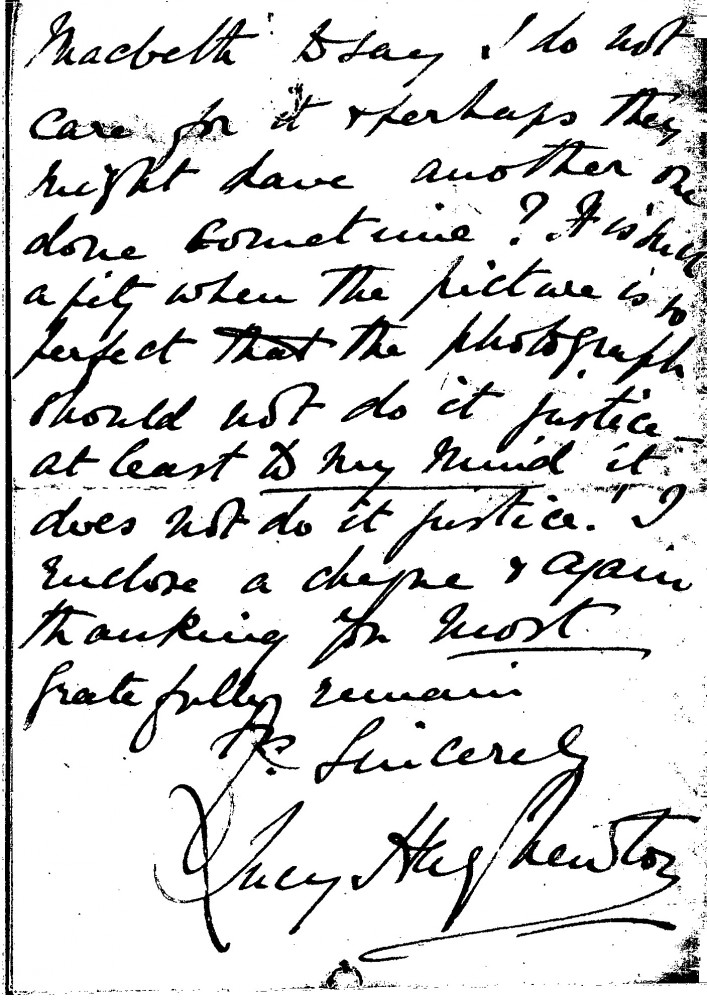 Macbeth to say I do not
care for it & perhaps they
might have another one
done sometime? It is such
a pity when the picture is so
perfect that the photograph
should not do it justice –
at least to my mind it
does not do it justice." I
enclose a cheque & again
thanking you most
gratefully remain
Yrs. Sincerely
Lucy